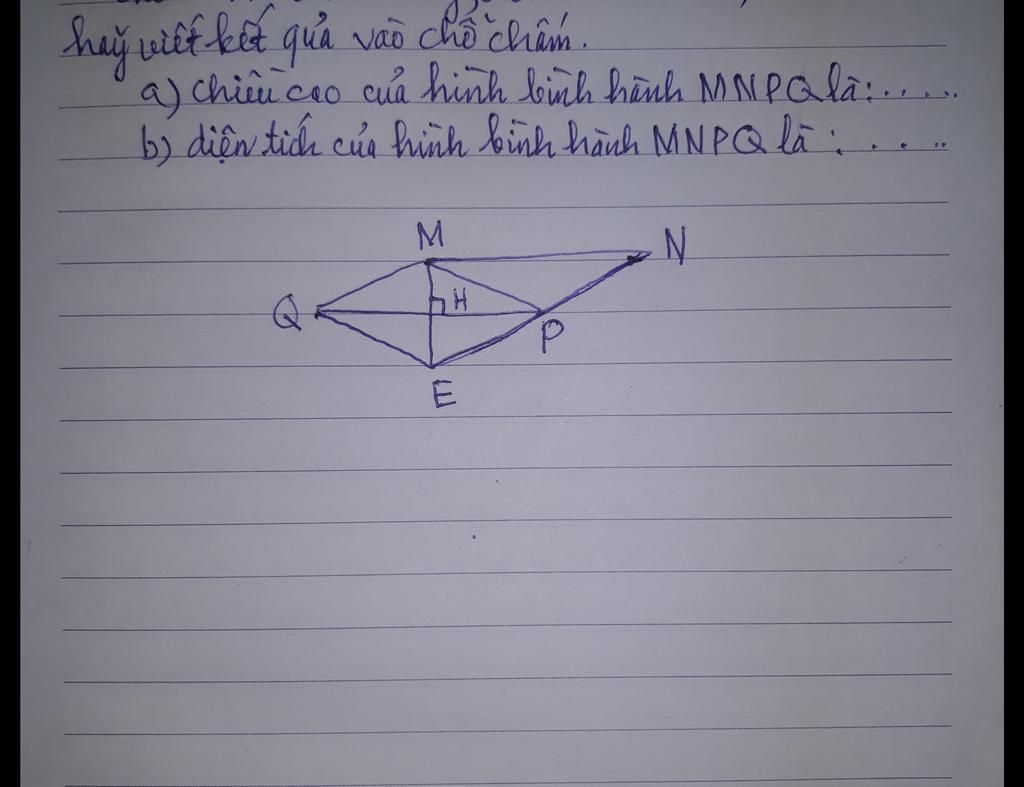 hãy viết kết quả vào chỗ chấm.
a) chiều cao của hình bình hành MNPQ là:.....
b) diện tích của hình bình hành MNPQ là : . . ..
M
N
H
Q
P
E